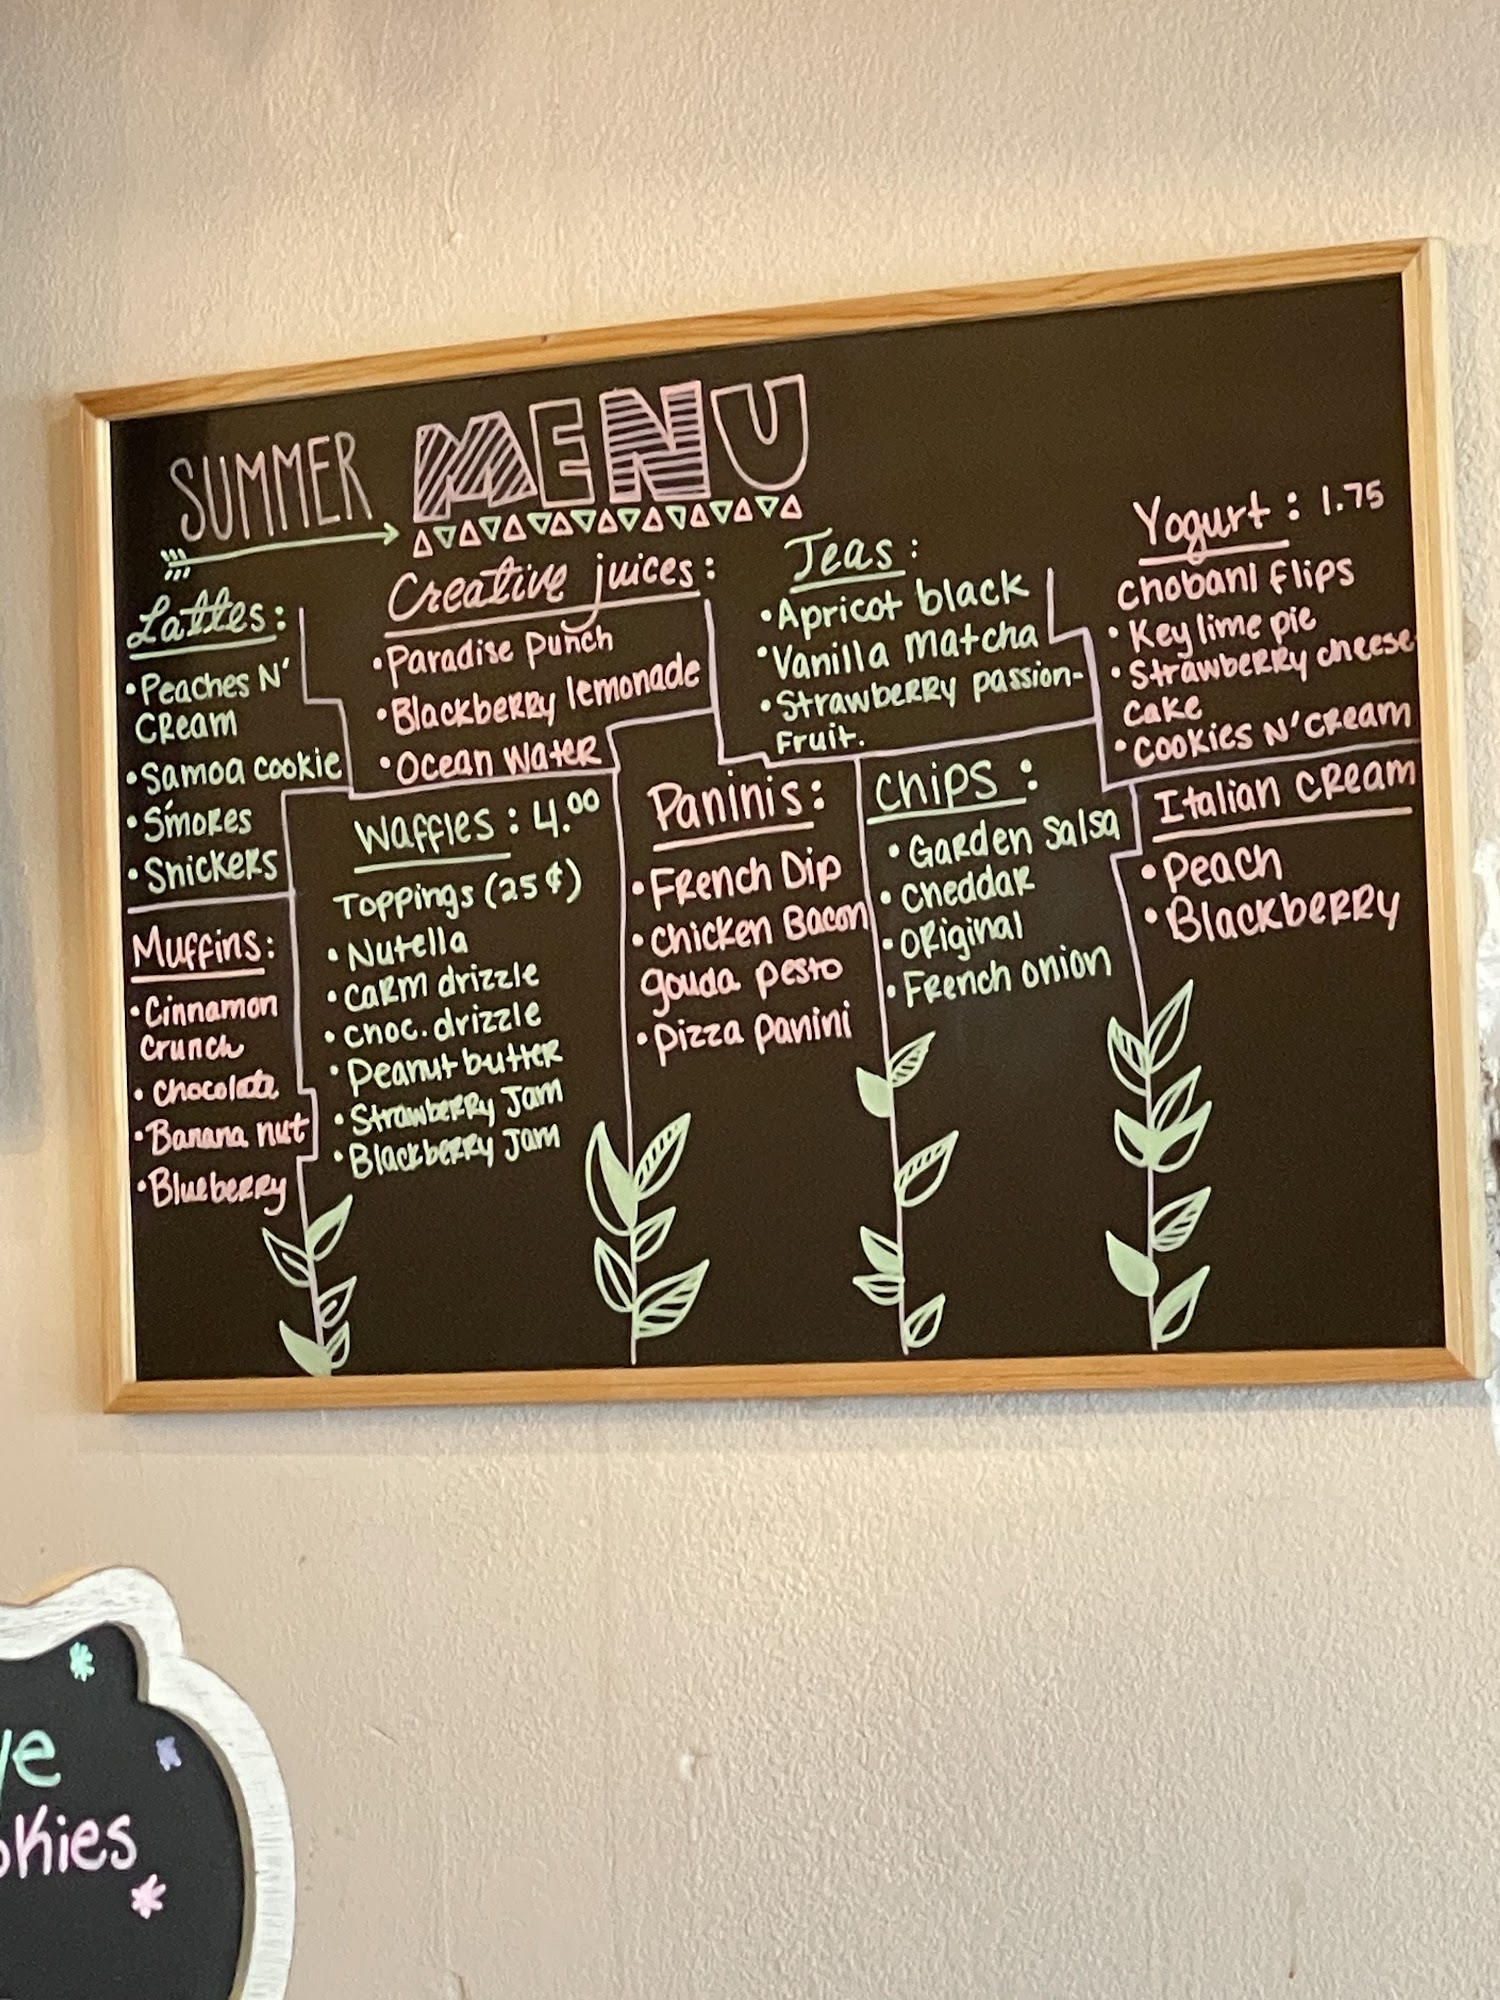 SUMMER MENU
Lattes:
• Peaches N'
CREAM
• Samoa cookie
• S'mores
• Snickers
Muffins:
• Cinnamon
Crunch
• Chocolate
• Banana nut
• Blueberry
Creative juices:
• Paradise Punch
• Blackberry lemonade
• Ocean Water
Waffles: 4.00
Toppings (25¢)
• Nutella
• carm drizzle
• choc. drizzle
• Peanut butter
• Strawberry Jam
• Blackberry Jam
Teas:
• Apricot black
• Vanilla matcha
• Strawberry passion-
Fruit.
Paninis:
• French Dip
• Chicken Bacon
gouda pesto
• Pizza panini
Chips:
• Garden Salsa
• Cheddar
• Original
• French onion
Yogurt: 1.75
Chobani flips
• Key lime pie
• Strawberry cheese
cake
• Cookies N' Cream
Italian cream
• Peach
• Blackberry
ye
okies